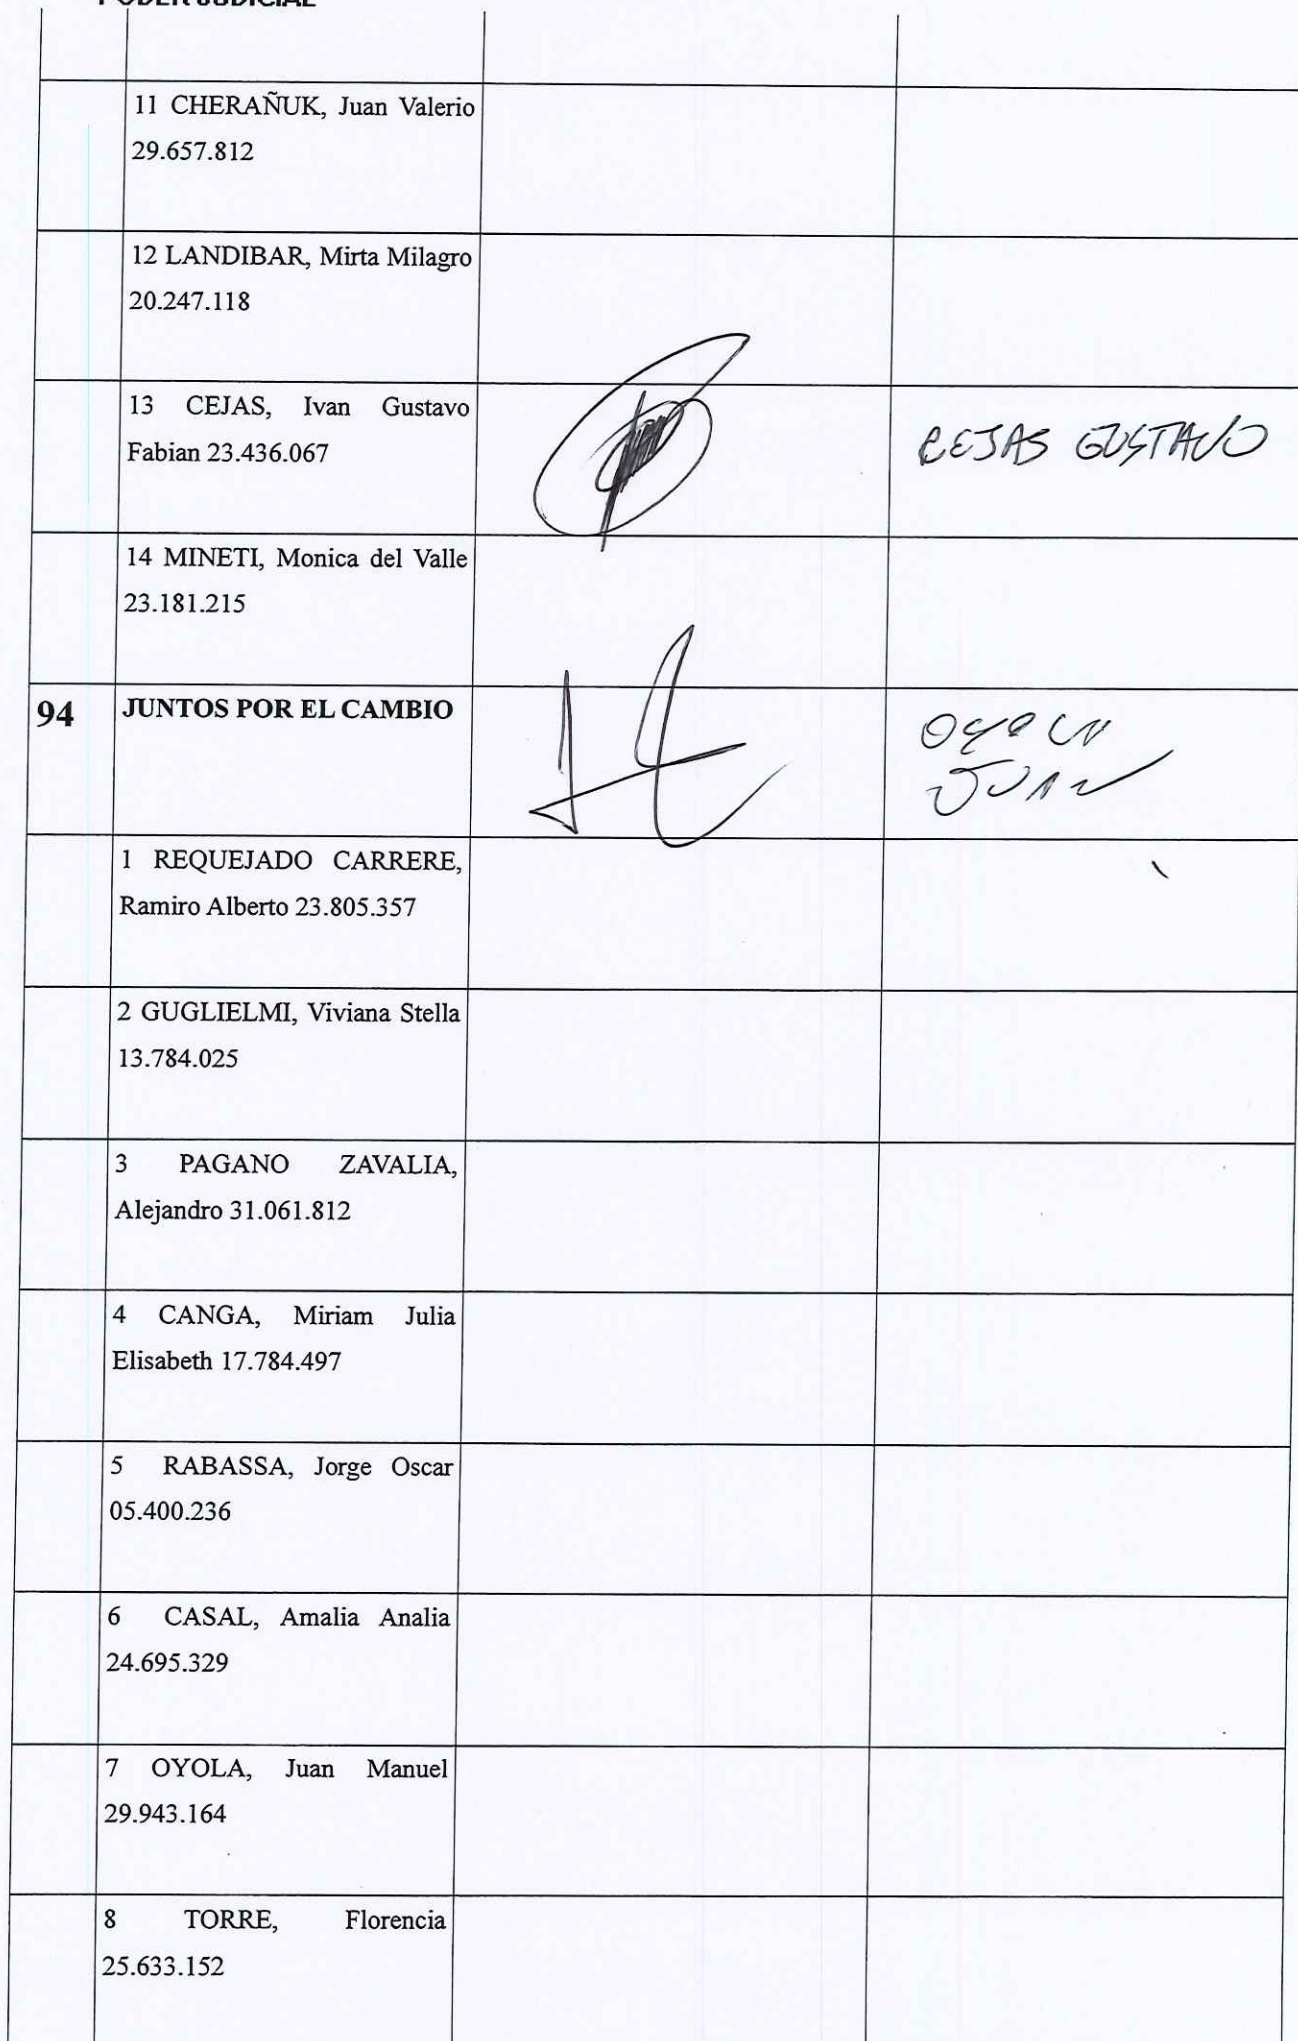 PODER JUDICIAL
11 CHERAÑUK, Juan Valerio
29.657.812
12 LANDIBAR, Mirta Milagro
20.247.118
13 CEJAS, Ivan Gustavo
Fabian 23.436.067
CEJAS GUSTAVO
14 MINETI, Monica del Valle
23.181.215
94 JUNTOS POR EL CAMBIO
OYOLA
JUAN
1 REQUEJADO CARRERE,
Ramiro Alberto 23.805.357
2 GUGLIELMI, Viviana Stella
13.784.025
3 PAGANO ZAVALIA,
Alejandro 31.061.812
4 CANGA, Miriam Julia
Elisabeth 17.784.497
5 RABASSA, Jorge Oscar
05.400.236
6 CASAL, Amalia Analia
24.695.329
7 OYOLA, Juan Manuel
29.943.164
8 TORRE, Florencia
25.633.152